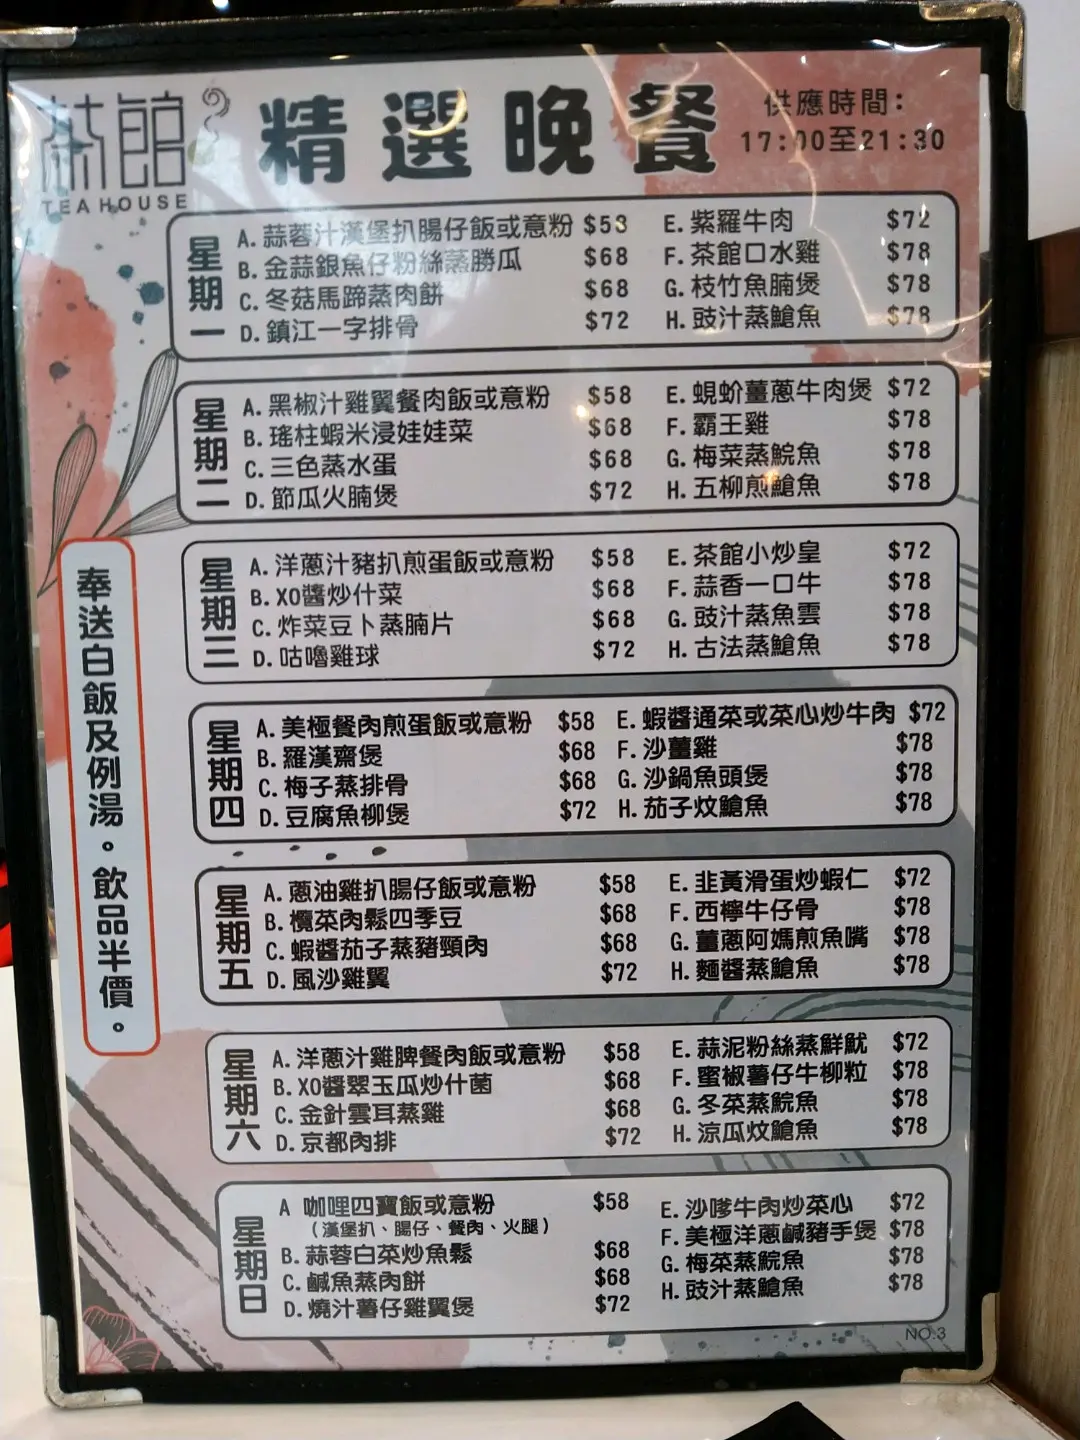 茶館
TEA HOUSE
精選晚餐
供應時間：
17:00至21:30
奉送白飯及例湯。飲品半價。
星期一
A. 蒜蓉汁漢堡扒腸仔飯或意粉 $53
B. 金蒜銀魚仔粉絲蒸勝瓜 $68
C. 冬菇馬蹄蒸肉餅 $68
D. 鎮江一字排骨 $72
E. 紫羅牛肉 $72
F. 茶館口水雞 $78
G. 枝竹魚腩煲 $78
H. 豉汁蒸鯧魚 $78
星期二
A. 黑椒汁雞翼餐肉飯或意粉 $58
B. 瑤柱蝦米浸娃娃菜 $68
C. 三色蒸水蛋 $68
D. 節瓜火腩煲 $72
E. 蜆蚧薑蔥牛肉煲 $72
F. 霸王雞 $78
G. 梅菜蒸鯇魚 $78
H. 五柳煎鯧魚 $78
星期三
A. 洋蔥汁豬扒煎蛋飯或意粉 $58
B. XO醬炒什菜 $68
C. 炸菜豆卜蒸腩片 $68
D. 咕嚕雞球 $72
E. 茶館小炒皇 $72
F. 蒜香一口牛 $78
G. 豉汁蒸魚雲 $78
H. 古法蒸鯧魚 $78
星期四
A. 美極餐肉煎蛋飯或意粉 $58
B. 羅漢齋煲 $68
C. 梅子蒸排骨 $68
D. 豆腐魚柳煲 $72
E. 蝦醬通菜或菜心炒牛肉 $72
F. 沙薑雞 $78
G. 沙鍋魚頭煲 $78
H. 茄子炆鯧魚 $78
星期五
A. 蔥油雞扒腸仔飯或意粉 $58
B. 欖菜肉鬆四季豆 $68
C. 蝦醬茄子蒸豬頸肉 $68
D. 風沙雞翼 $72
E. 韭黃滑蛋炒蝦仁 $72
F. 西檸牛仔骨 $78
G. 薑蔥阿媽煎魚嘴 $78
H. 麵醬蒸鯧魚 $78
星期六
A. 洋蔥汁雞脾餐肉飯或意粉 $58
B. XO醬翠玉瓜炒什菌 $68
C. 金針雲耳蒸雞 $68
D. 京都肉排 $72
E. 蒜泥粉絲蒸鮮魷 $72
F. 蜜椒薯仔牛柳粒 $78
G. 冬菜蒸鯇魚 $78
H. 涼瓜炆鯧魚 $78
星期日
A 咖哩四寶飯或意粉 $58
（漢堡扒、腸仔、餐肉、火腿）
B. 蒜蓉白菜炒魚鬆 $68
C. 鹹魚蒸肉餅 $68
D. 燒汁薯仔雞翼煲 $72
E. 沙嗲牛肉炒菜心 $72
F. 美極洋蔥鹹豬手煲 $78
G. 梅菜蒸鯇魚 $78
H. 豉汁蒸鯧魚 $78
NO.3